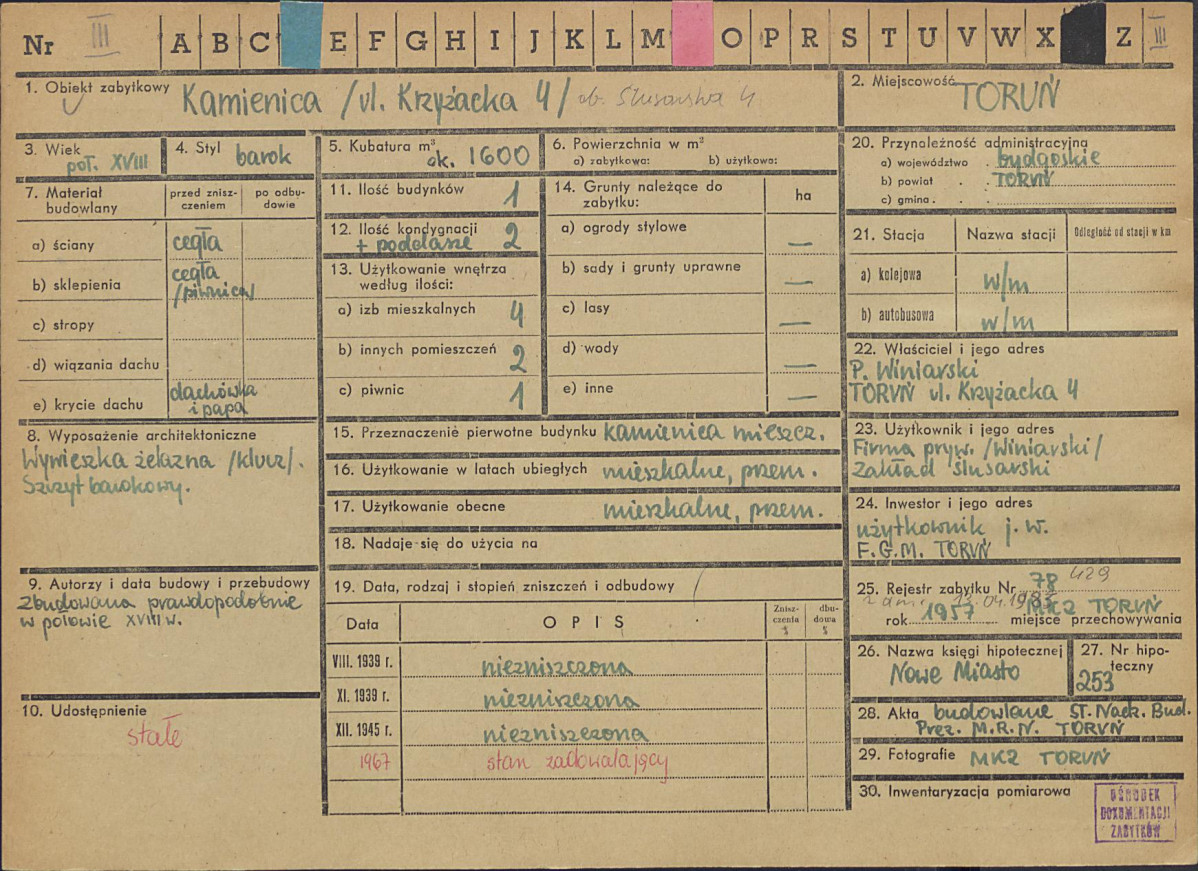 Nr III A B C E F G H I J K L M O P R S T U V W X Z III
1. Obiekt zabytkowy Kamienica /ul. Krzyżacka 4/ ob. Ślusarska 4
2. Miejscowość TORUŃ
3. Wiek poł. XVIII
4. Styl barok
5. Kubatura m³ ok. 1600
6. Powierzchnia w m²
a) zabytkowa: b) użytkowa:
7. Materiał budowlany
przed znisz-
czeniem
po odbu-
dowie
a) ściany cegła
b) sklepienia cegła
/piwnica/
c) stropy
d) wiązania dachu
e) krycie dachu dachówka
i papa
8. Wyposażenie architektoniczne
Wywieszka żelazna /klucz/.
Szczyt barokowy.
9. Autorzy i data budowy i przebudowy
Zbudowana prawdopodobnie
w połowie XVIII w.
10. Udostępnienie
stałe
11. Ilość budynków 1
12. Ilość kondygnacji 2
+ poddasze
13. Użytkowanie wnętrza
według ilości:
a) izb mieszkalnych 4
b) innych pomieszczeń 2
c) piwnic 1
14. Grunty należące do
zabytku:
ha
a) ogrody stylowe —
b) sady i grunty uprawne —
c) lasy —
d) wody —
e) inne —
15. Przeznaczenie pierwotne budynku kamienica mieszcz.
16. Użytkowanie w latach ubiegłych mieszkalne, przem.
17. Użytkowanie obecne mieszkalne, przem.
18. Nadaje się do użycia na
19. Data, rodzaj i stopień zniszczeń i odbudowy
Data
OPIS
Znisz-
czenia
%
dbu-
dowa
%
VIII. 1939 r. niezniszczona
XI. 1939 r. niezniszczona
XII. 1945 r. niezniszczona
1967 stan zadowalający
20. Przynależność administracyjna
a) województwo bydgoskie
b) powiat TORUŃ
c) gmina
21. Stacja
Nazwa stacji
Odległość od stacji w km
a) kolejowa w/m
b) autobusowa w/m
22. Właściciel i jego adres
P. Winiarski
TORUŃ ul. Krzyżacka 4
23. Użytkownik i jego adres
Firma pryw. /Winiarski/
Zakład ślusarski
24. Inwestor i jego adres
użytkownik j. w.
F.G.M. TORUŃ
25. Rejestr zabytku Nr 78 429
z dnia 13.04.1983
rok 1957 MKZ TORUŃ
miejsce przechowywania
26. Nazwa księgi hipotecznej
Nowe Miasto
27. Nr hipo-
teczny
253
28. Akta budowlane ST. Nadz. Bud.
Prez. M.R.N. TORUŃ
29. Fotografie MKZ TORUŃ
30. Inwentaryzacja pomiarowa
OŚRODEK
DOKUMENTACJI
ZABYTKÓW